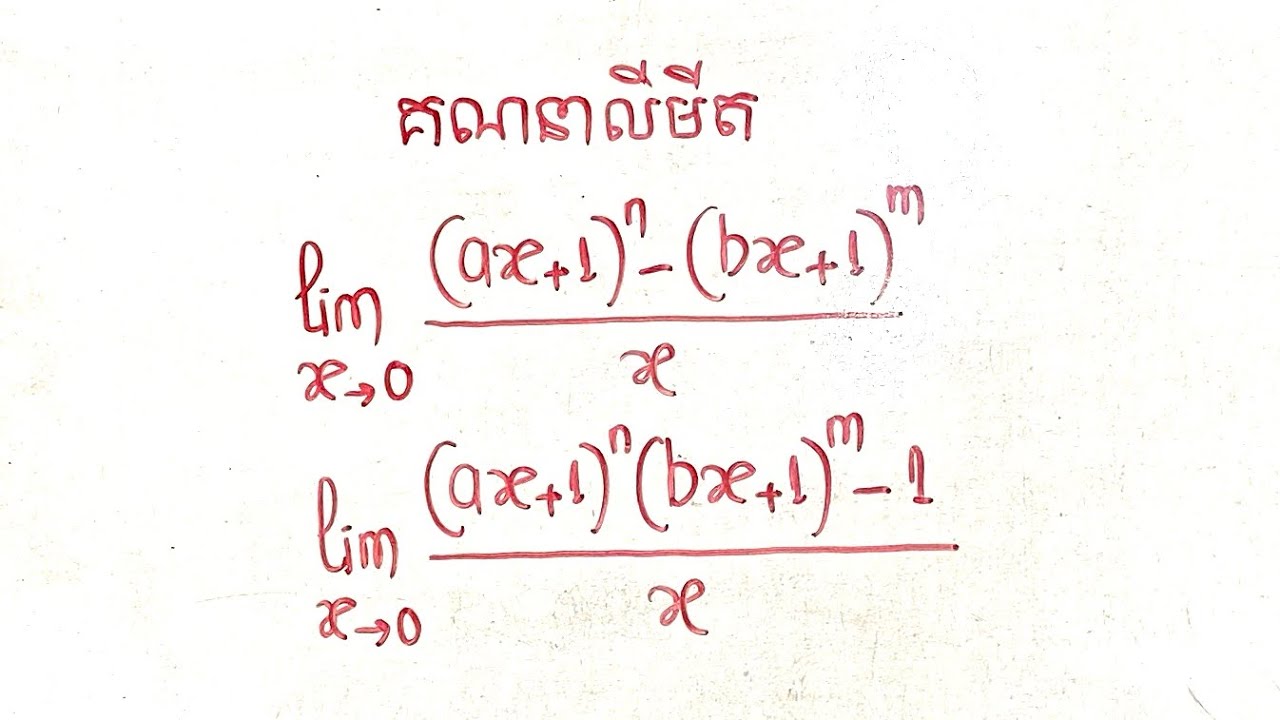 គណនាលីមីត
lim x→0 ((ax+1)^n - (bx+1)^m) / x
lim x→0 ((ax+1)^n (bx+1)^m - 1) / x